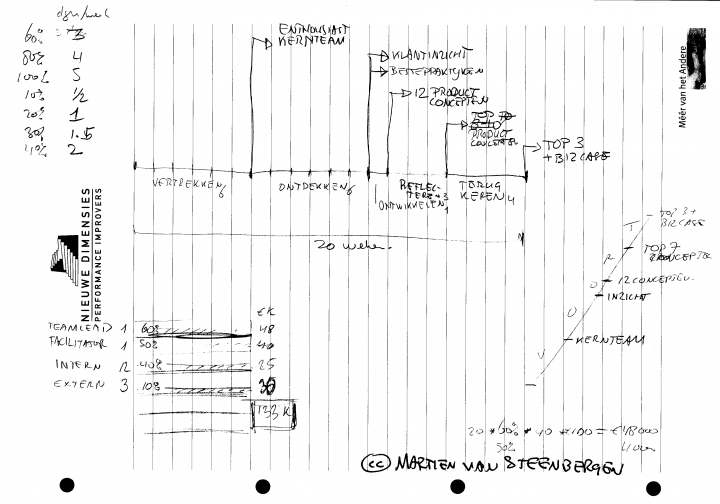 dgn/week
60% 3
80% 4
100% 5
10% 1/2
20% 1
30% 1.5
40% 2
ENTHOUSIAST
KERNTEAM
KLANTINZICHT
BESTEPRAKTIJKEN
12 PRODUCT
CONCEPTEN
TOP
5-10
PRODUCT
CONCEPTEN
TOP 3
+ BIZCASE
Méér van het Andere
VERTREKKEN 6
ONTDEKKEN 6
REFLEC-
TEREN 3
ONTWIKKELEN 1
TERUG
KEREN 4
20 weken
NIEUWE DIMENSIES
PERFORMANCE IMPROVERS
TOP 3 +
BIZCASE
TOP 7
CONCEPTEN
12 CONCEPTEN
INZICHT
KERNTEAM
V O O R T
€K
TEAMLEAD 1 60% 48
FACILITATOR 1 50% 40
INTERN 12 40% 25
EXTERN 3 10%
133 K
20 * 60% * 40 * 100 = €48000
50%
(cc) MARTIEN VAN STEENBERGEN